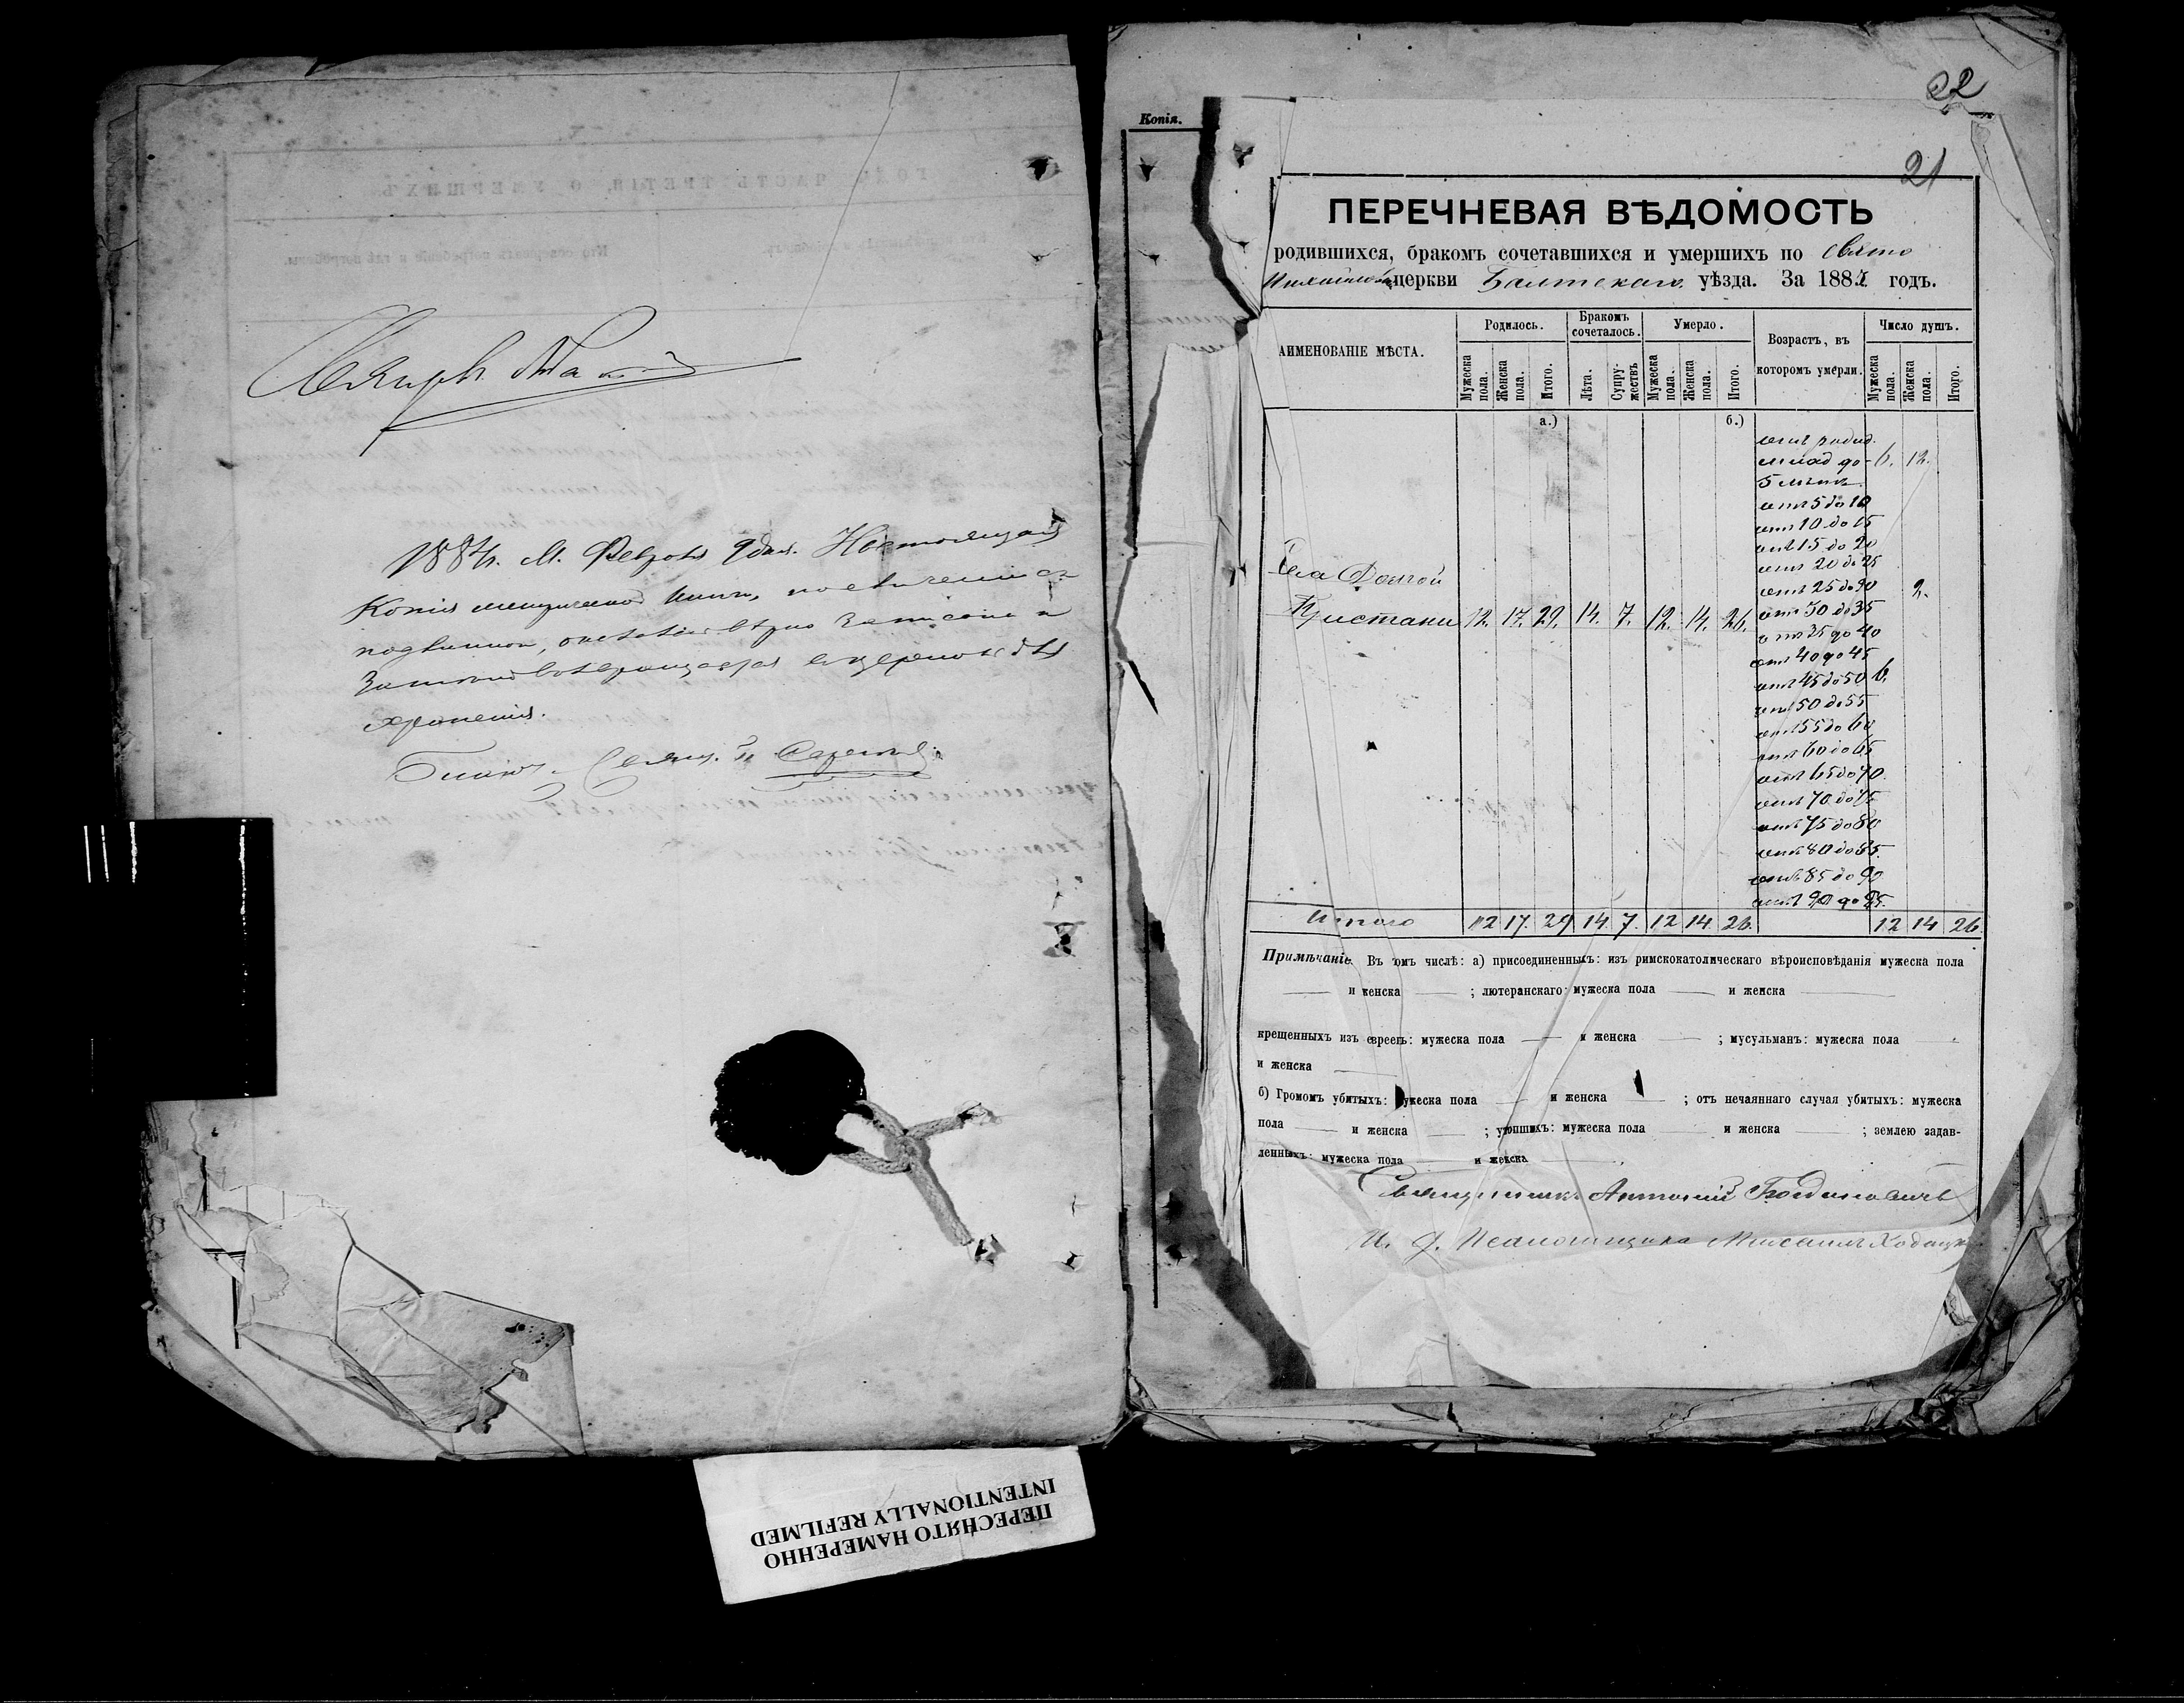 1884 г. М. Февраля 9 дня. Настоящая
Копія метрической Книги, по свѣреніи съ
подлинною, оказалась вѣрно записана и
возвращается въ церковь для
храненія.
Благоч. Свящ.
22
21
Копія.
ПЕРЕЧНЕВАЯ ВѢДОМОСТЬ
родившихся, бракомъ сочетавшихся и умершихъ по Свято
церкви Балтскаго уѣзда. За 1883 годъ.
АИМЕНОВАНІЕ МѢСТА.
Родилось.
Бракомъ сочеталось.
Умерло.
Возрастъ, въ
которомъ умерли.
Число душъ.
Мужеска пола.
Женска пола.
Итого.
Лѣта.
Супружествъ
Мужеска пола.
Женска пола.
Итого.
Мужеска пола.
Женска пола.
Итого.
а.)
б.)
отъ рожд.
млад до 6. 12.
5 лѣтъ
отъ 5 до 10
отъ 10 до 15
отъ 15 до 20
отъ 20 до 25
отъ 25 до 30 2.
Села Долгой
Пристани 12. 17. 29. 14. 7. 12. 14. 26.
отъ 30 до 35
отъ 35 до 40
отъ 40 до 45
отъ 45 до 50 6.
отъ 50 до 55
отъ 55 до 60
отъ 60 до 65
отъ 65 до 70
отъ 70 до 75
отъ 75 до 80
отъ 80 до 85.
отъ 85 до 90
отъ 90 до 95.
Итого 12 17. 29 14. 7. 12 14. 26. 12 14 26
Примѣчаніе. Въ томъ числѣ: а) присоединенныхъ: изъ римскокатолическаго вѣроисповѣданія мужеска пола
— и женска — ; лютеранскаго: мужеска пола — и женска —
крещенныхъ изъ евреевъ: мужеска пола — и женска — ; мусульманъ: мужеска пола —
и женска —
б) Громомъ убитыхъ: мужеска пола — и женска — ; отъ нечаяннаго случая убитыхъ: мужеска
пола — и женска — ; утопшихъ: мужеска пола — и женска — ; землею задав-
ленныхъ: мужеска пола — и женска —
Священникъ Антоній Богдановичъ
И. д. Псаломщика Михаилъ
ПЕРЕСНЯТО НАМЕРЕННО
INTENTIONALLY REFILMED